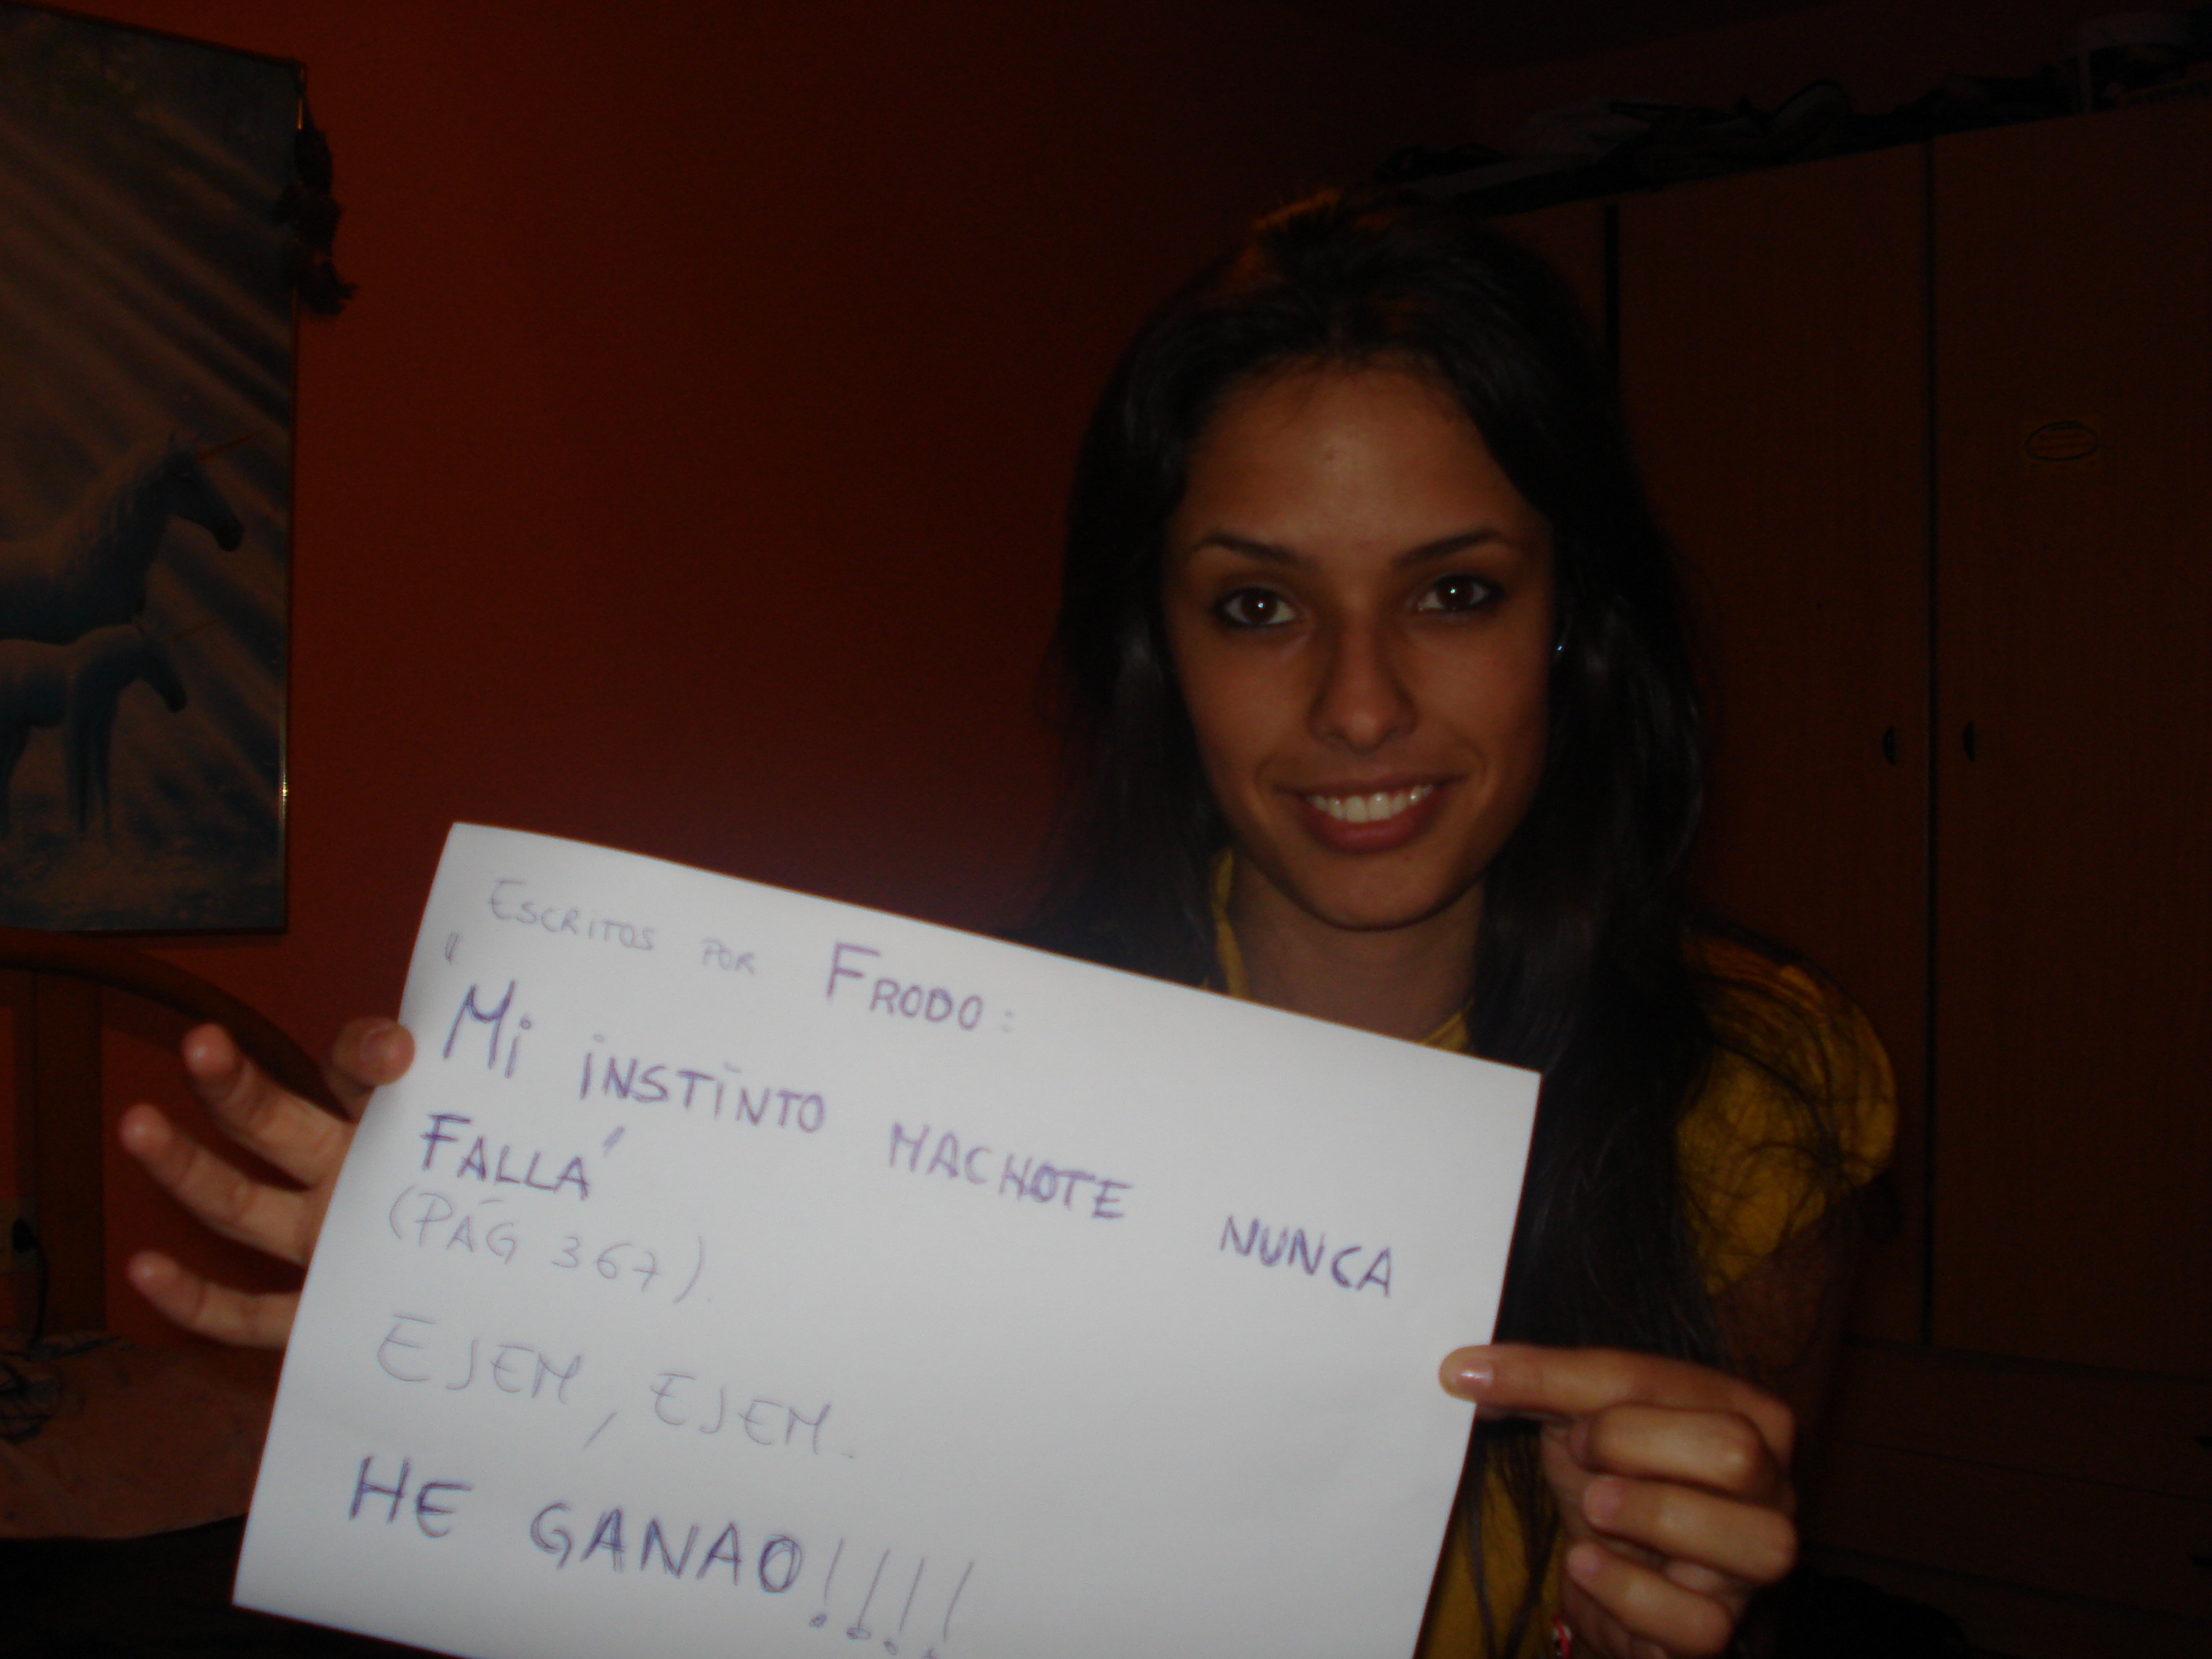 ESCRITOS POR FRODO:
"MI INSTINTO MACHOTE NUNCA
FALLA"
(PÁG 367).
EJEM, EJEM..
HE GANAO!!!!